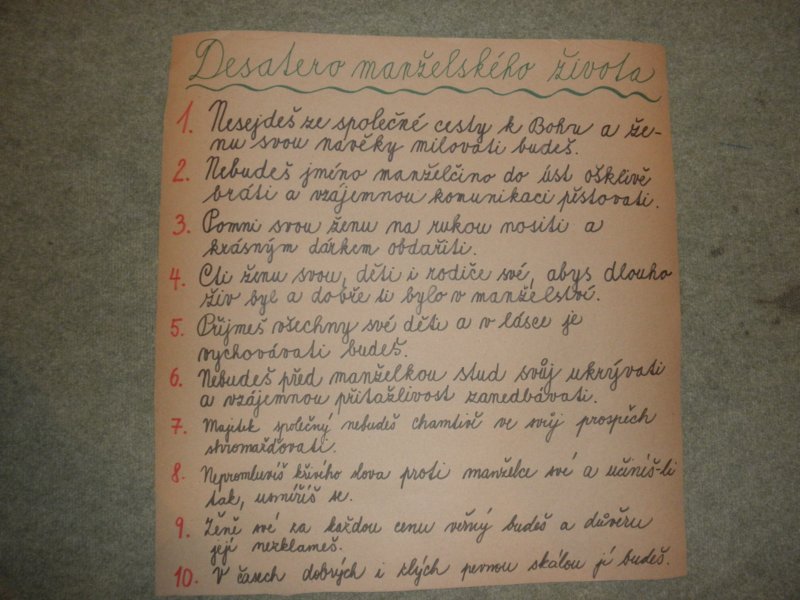 Desatero manželského života
1. Nesejdeš ze společné cesty k Bohu a že-
nu svou navěky milovati budeš.
2. Nebudeš jméno manželčino do úst ošklivě
bráti a vzájemnou komunikaci pěstovati.
3. Pomni svou ženu na rukou nositi a
krásným dárkem obdařiti.
4. Cti ženu svou, děti i rodiče své, abys dlouho
živ byl a dobře ti bylo v manželství.
5. Přijmeš všechny své děti a v lásce je
vychovávati budeš.
6. Nebudeš před manželkou stud svůj ukrývati
a vzájemnou přitažlivost zanedbávati.
7. Majitek společný nebudeš chamtivě ve svůj prospěch
shromažďovati.
8. Nepromluvíš křivého slova proti manželce své a učiníš-li
tak, usmíříš se.
9. Ženě své za každou cenu věrný budeš a důvěru
její nezklameš.
10. V časech dobrých i zlých pevnou skálou jí budeš.